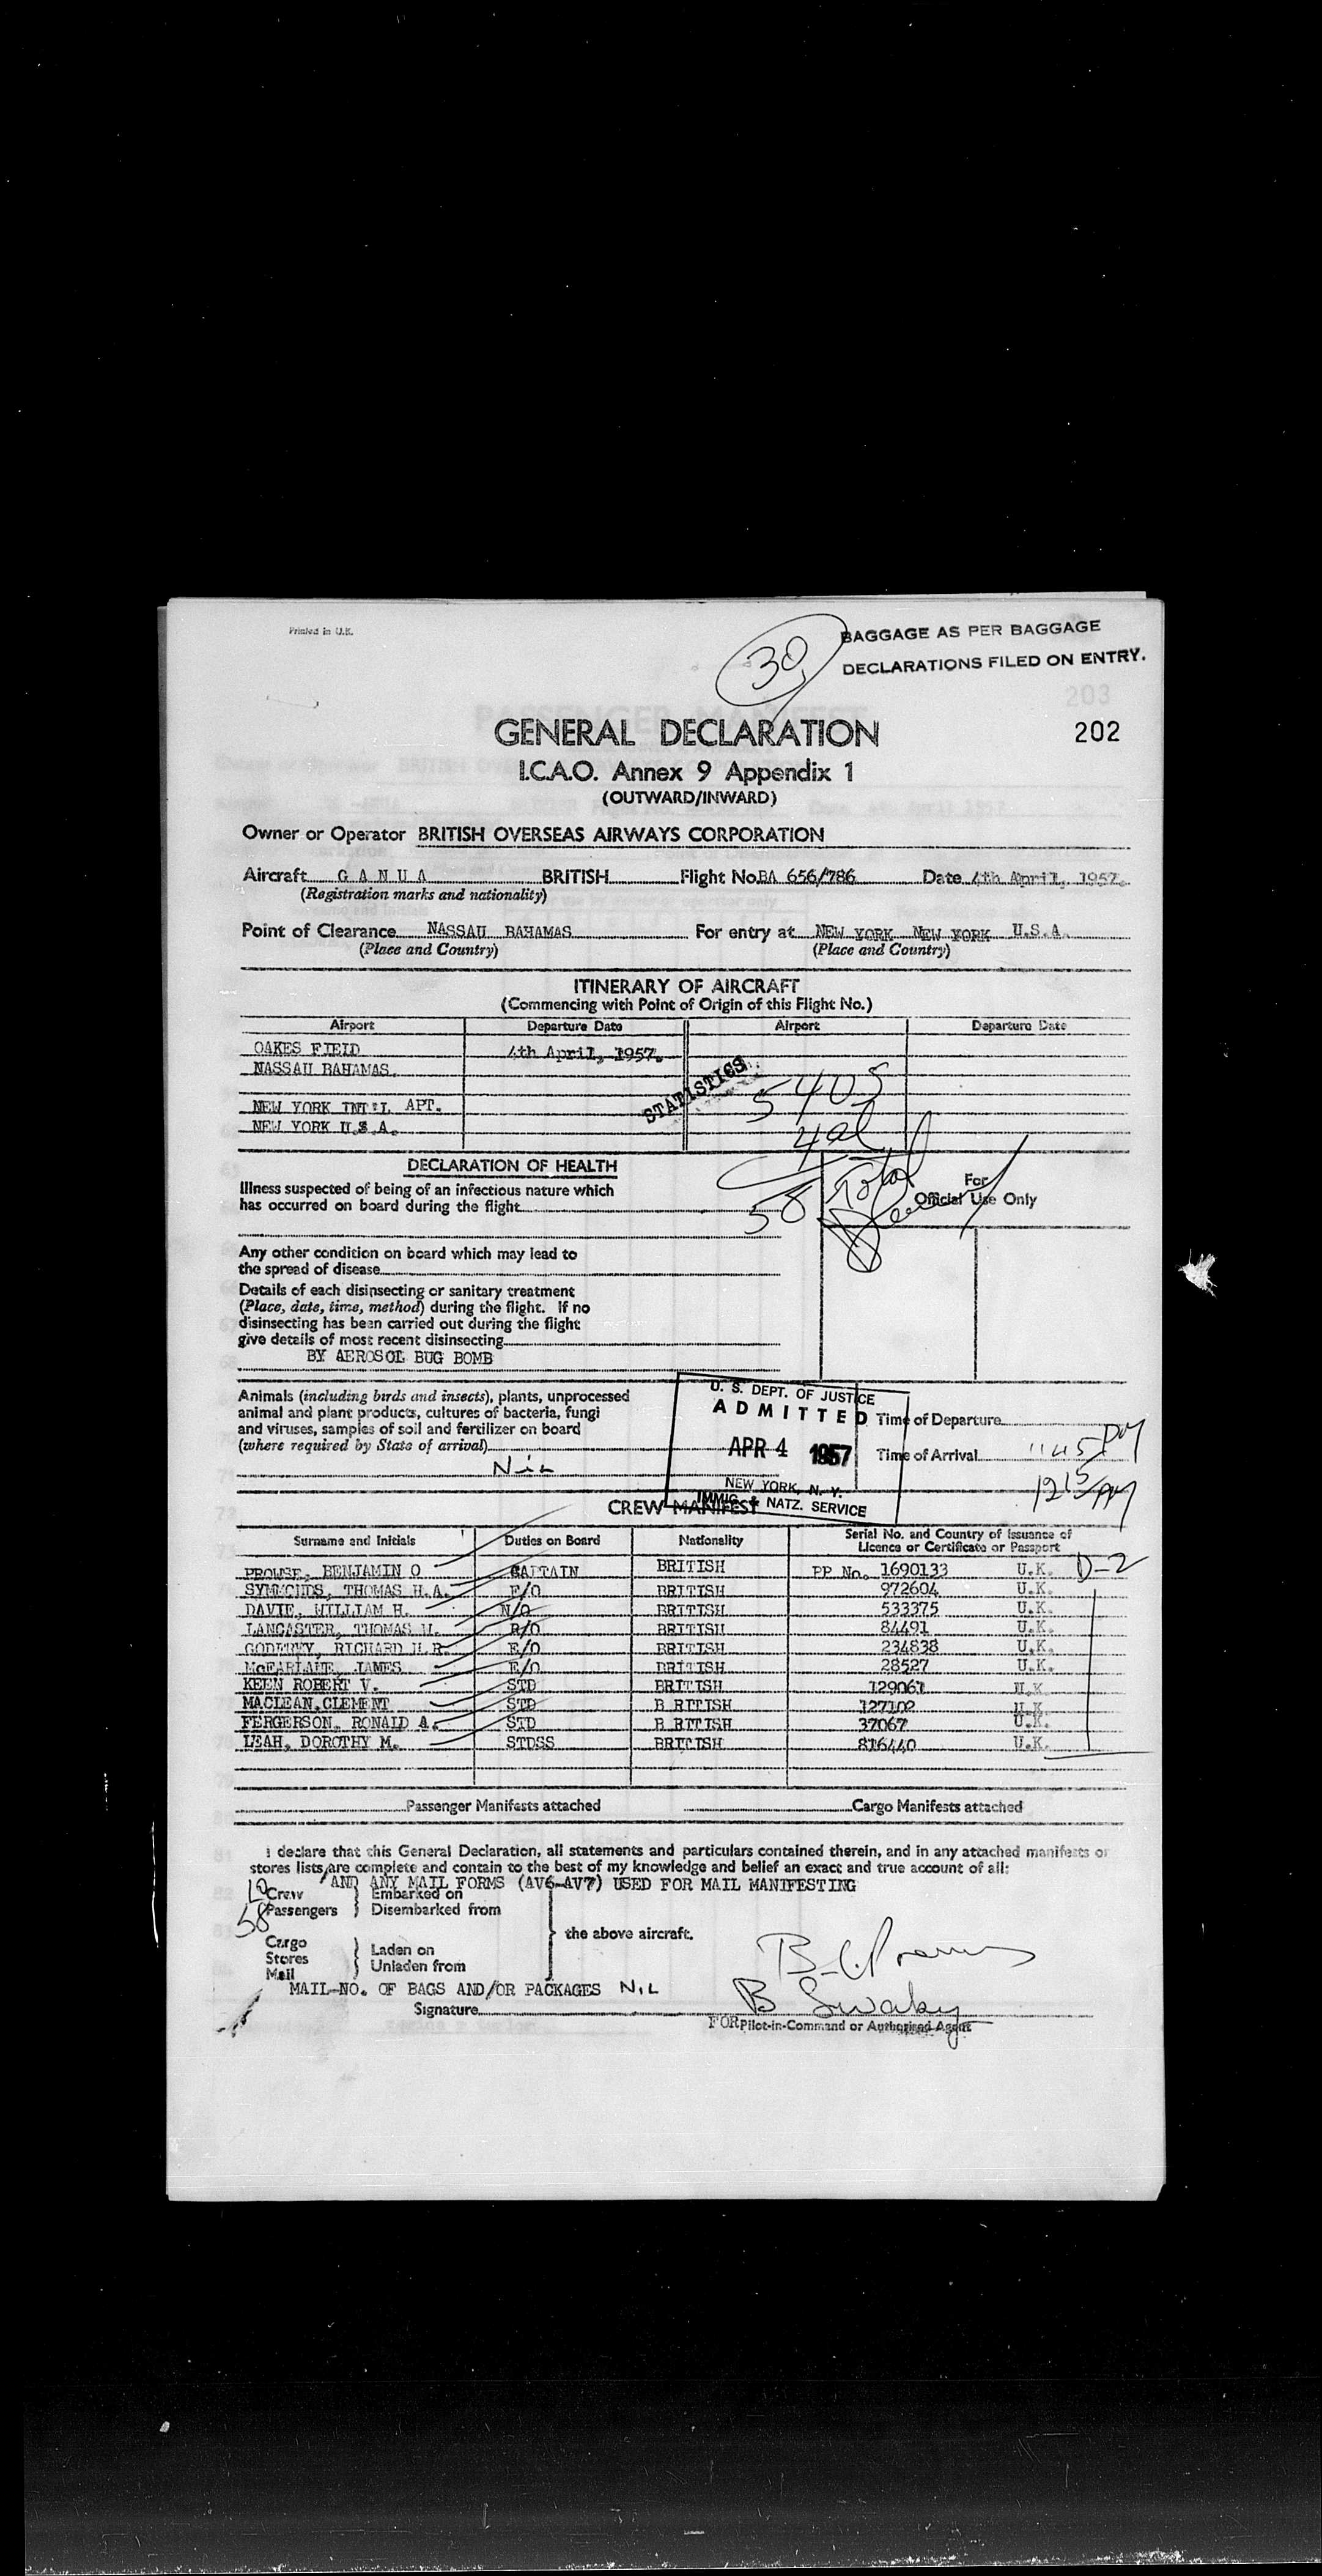 Printed in U.K.
30
BAGGAGE AS PER BAGGAGE
DECLARATIONS FILED ON ENTRY.
203
202
GENERAL DECLARATION
I.C.A.O. Annex 9 Appendix 1
(OUTWARD/INWARD)
Owner or Operator BRITISH OVERSEAS AIRWAYS CORPORATION
Aircraft G A N U A BRITISH Flight No. BA 656/786 Date 4th April, 1957.
(Registration marks and nationality)
Point of Clearance NASSAU BAHAMAS For entry at NEW YORK NEW YORK U.S.A.
(Place and Country) (Place and Country)
ITINERARY OF AIRCRAFT
(Commencing with Point of Origin of this Flight No.)
Airport Departure Date Airport Departure Date
OAKES FIELD 4th April, 1957.
NASSAU BAHAMAS.
STATISTICS
NEW YORK INT'L APT.
NEW YORK U.S.A.
DECLARATION OF HEALTH
58 Total
For
Official Use Only
Illness suspected of being of an infectious nature which
has occurred on board during the flight
Any other condition on board which may lead to
the spread of disease
Details of each disinsecting or sanitary treatment
(Place, date, time, method) during the flight. If no
disinsecting has been carried out during the flight
give details of most recent disinsecting
BY AEROSOL BUG BOMB
Animals (including birds and insects), plants, unprocessed
animal and plant products, cultures of bacteria, fungi
and viruses, samples of soil and fertilizer on board
(where required by State of arrival)
Nil
U. S. DEPT. OF JUSTICE
ADMITTED
APR 4 1957
NEW YORK, N. Y.
IMMIG. & NATZ. SERVICE
Time of Departure
Time of Arrival 1145 PM
1215 PM
CREW MANIFEST
Surname and Initials Duties on Board Nationality Serial No. and Country of Issuance of
Licence or Certificate or Passport
PROWSE, BENJAMIN O CAPTAIN BRITISH PP No. 1690133 U.K. D-2
SYMMONDS, THOMAS H.A. F/O BRITISH 972604 U.K.
DAVIE, WILLIAM H. N/O BRITISH 533375 U.K.
LANCASTER, THOMAS W. R/O BRITISH 84491 U.K.
GODFREY, RICHARD H.R. E/O BRITISH 234838 U.K.
McFARLANE, JAMES E/O BRITISH 28527 U.K.
KEEN ROBERT V. STD BRITISH 129061 U.K.
MACLEAN, CLEMENT STD B RITISH 127102 U.K.
FERGERSON, RONALD A. STD B RITISH 37067 U.K.
LEAH, DOROTHY M. STDSS BRITISH 816440 U.K.
Passenger Manifests attached Cargo Manifests attached
I declare that this General Declaration, all statements and particulars contained therein, and in any attached manifests or
stores lists, are complete and contain to the best of my knowledge and belief an exact and true account of all:
AND ANY MAIL FORMS (AV6-AV7) USED FOR MAIL MANIFESTING
10 Crew Embarked on
58 Passengers Disembarked from
the above aircraft.
Cargo
Stores Laden on
Mail Unladen from
MAIL-NO. OF BAGS AND/OR PACKAGES NIL
Signature B Swaby
FOR Pilot-in-Command or Authorised Agent